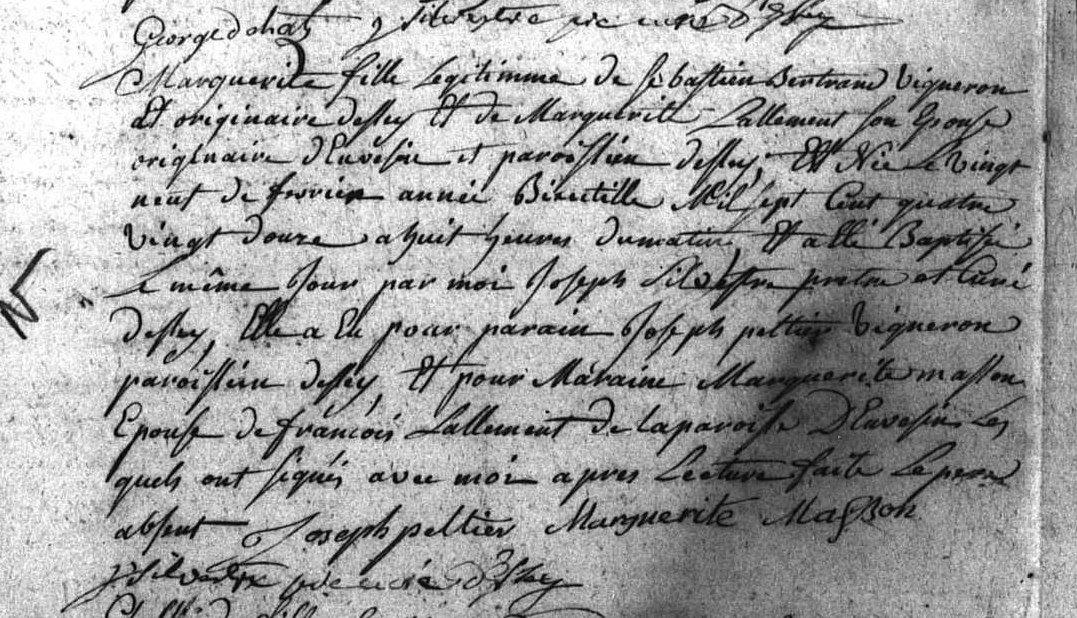 George dohat j Silvestre ptre curé d'Essey
Marguerite fille Legitimme de Sebastien Bertrand Vigneron
Et originaire dessey Et de Marguerite Lallement son Epouse
originaire d'Euvesin et paroissien dessey, Est Née Le Vingt
neuf de fevrier année Bisextille Mil Sept Cent quatre
Vingt douze a huit heures du matin Et a Eté Baptisée
Le même Jour par moi Joseph Silvestre pretre et Curé
dessey, Elle a Eu pour parain Joseph peltier Vigneron
paroissien dessey Et pour Maraine Marguerite masson
Epouse de françois Lallement de la paroisse D'Euvesin Les
quels ont signés avec moi apres Lecture faite Le pere
absent Joseph peltier Marguerite Masson
j Silvestre ptre curé d'Essey